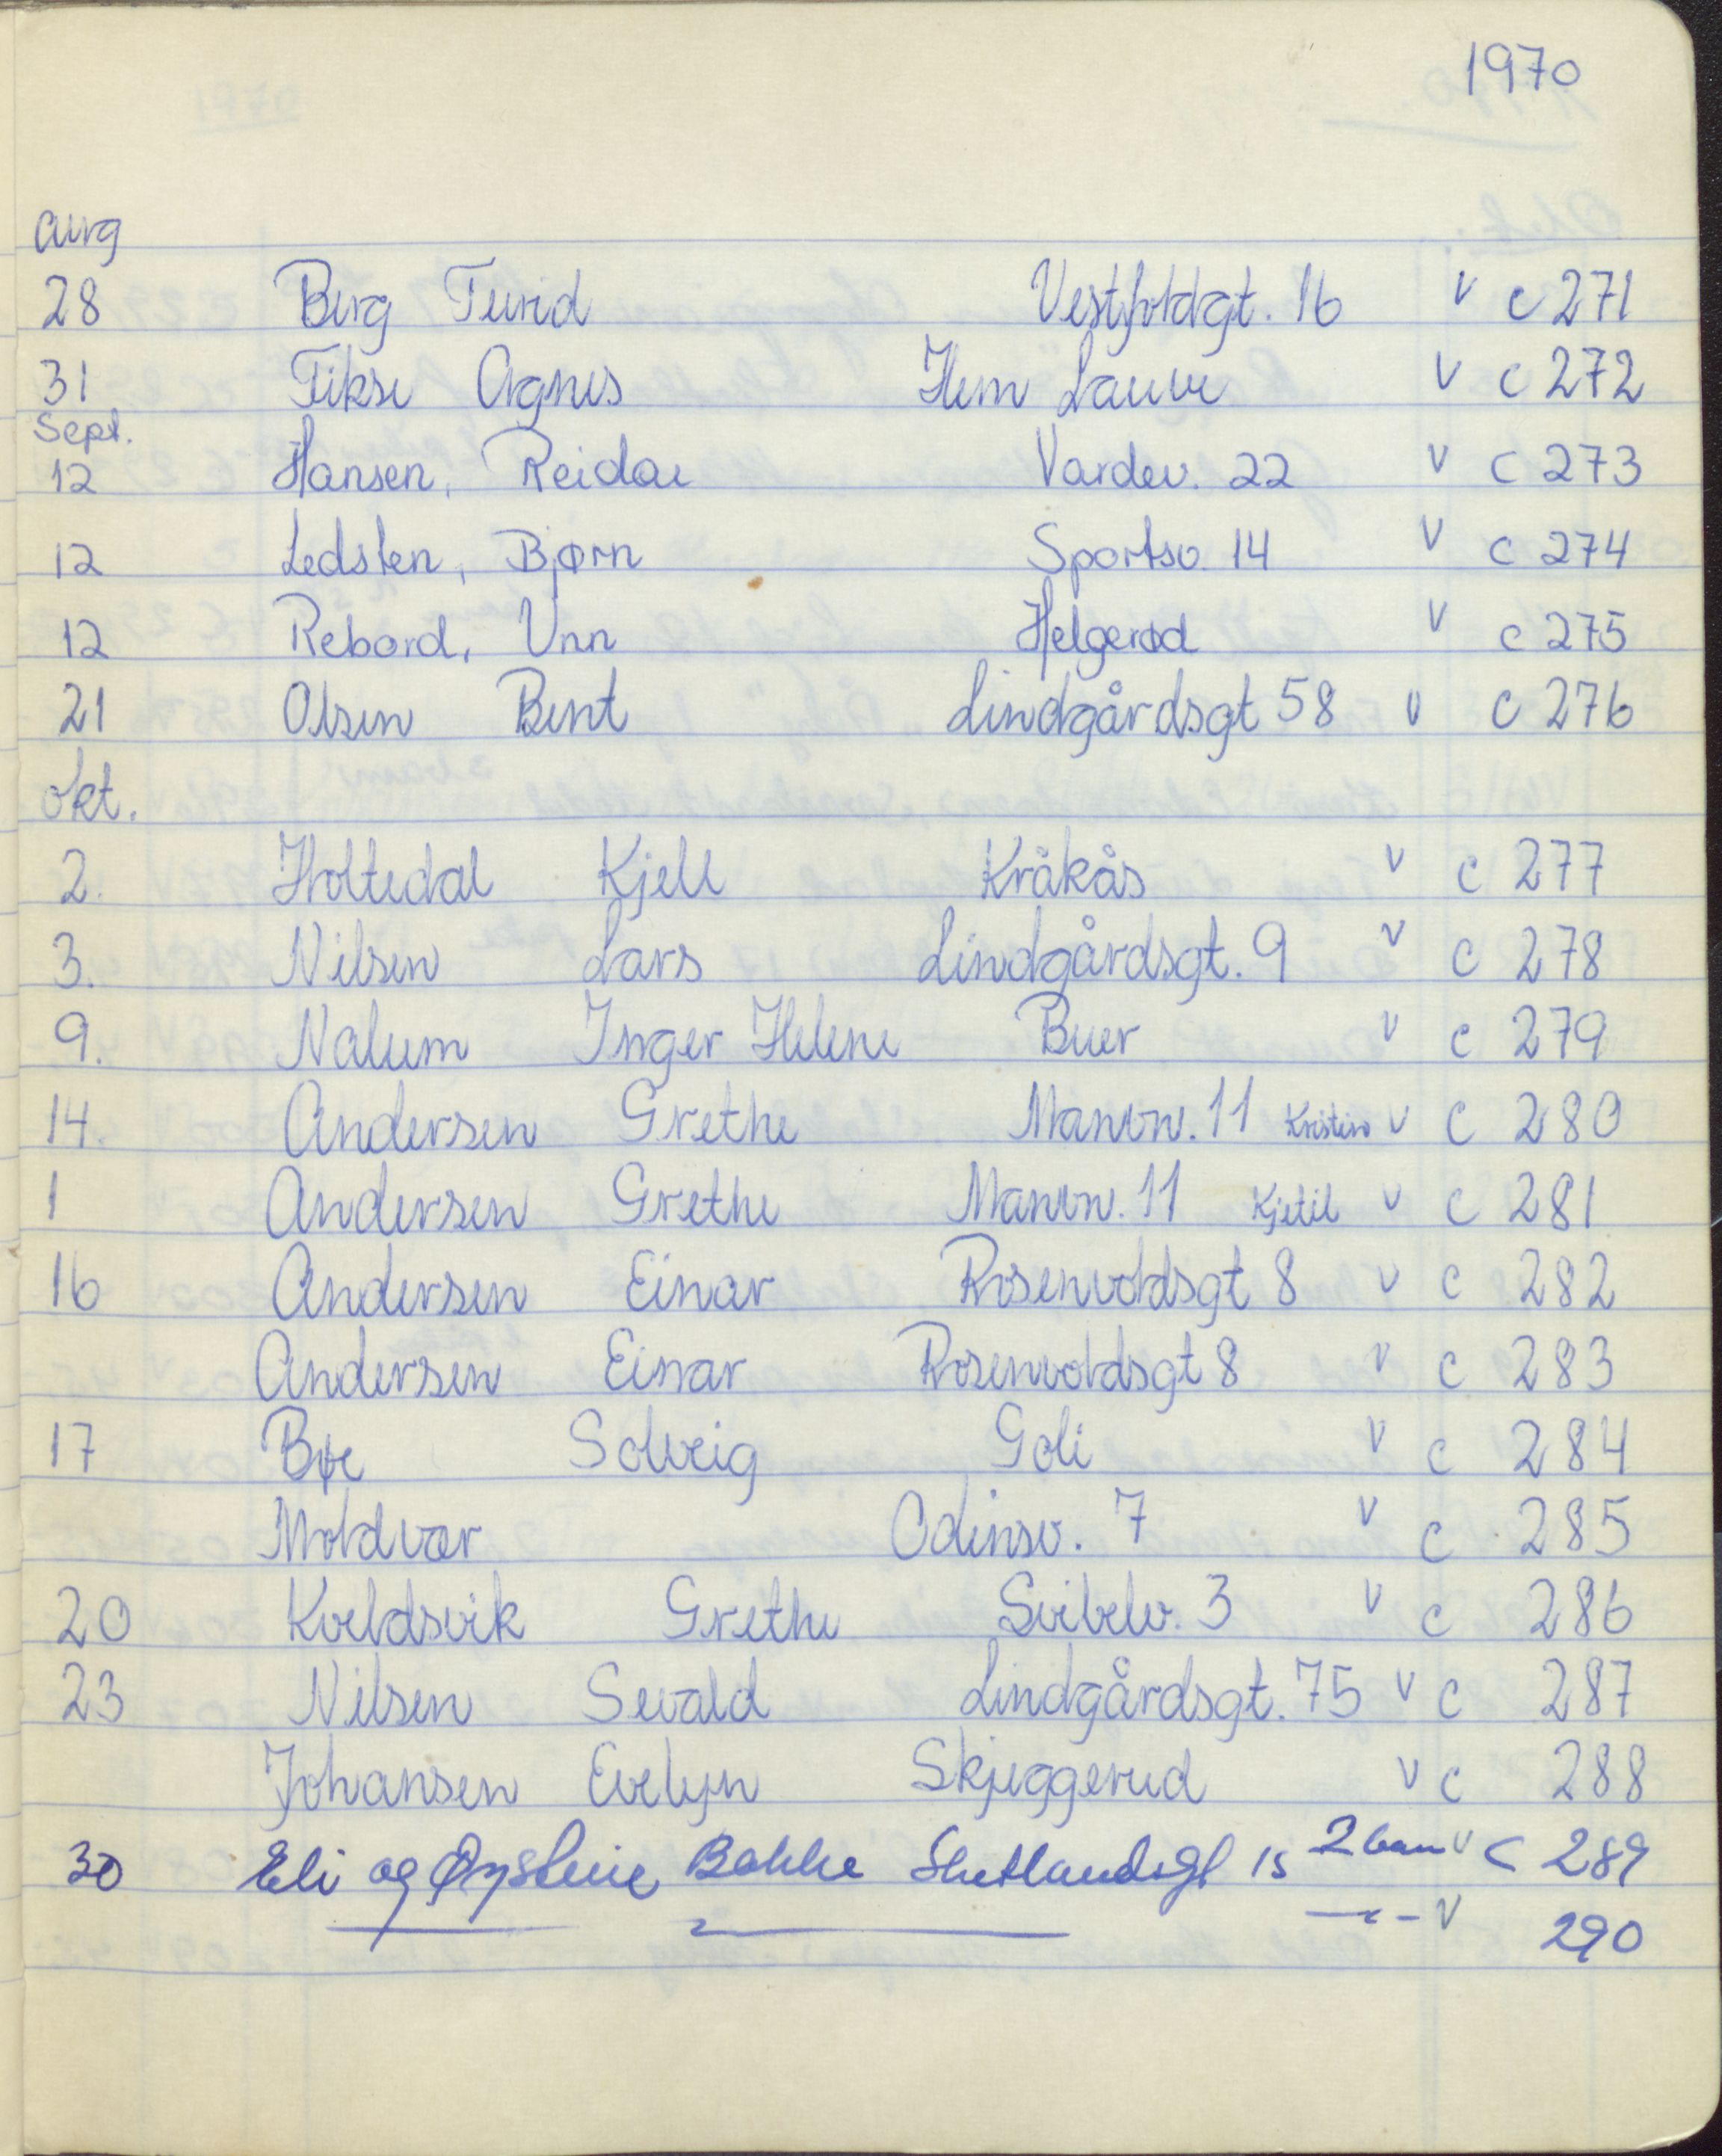 1970
aug
28 Berg Turid Vestfoldgt. 16 v c 271
31 Fikse Agnes Hem Lauve v c 272
Sept.
12 Hansen, Reidar Vardev. 22 v c 273
12 Ledsten, Bjørn Sportsv. 14 v c 274
12 Rebord, Unn Helgerød v c 275
21 Olsen Bent Lindgårdsgt 58 v c 276
okt.
2. Holtedal Kjell Kråkås v c 277
3. Nilsen Lars Lindgårdsgt. 9 v c 278
9. Nalum Inger Helene Buer v c 279
14. Andersen Grethe 11 Kristin v c 280
1 Andersen Grethe 11 Kjetil v c 281
16 Andersen Einar Rosenvoldsgt 8 v c 282
Andersen Einar Rosenvoldsgt 8 v c 283
17 Bøe Solveig Goli v c 284
Moldvær Odinsv. 7 v c 285
20 Kveldsvik Grethe 3 v c 286
23 Nilsen Sevald Lindgårdsgt. 75 v c 287
Johansen Evelyn Skjeggerud v c 288
30 Eli og Øysteine Bakke Shetlandsgt 15 2 barn v c 289
— " — v 290